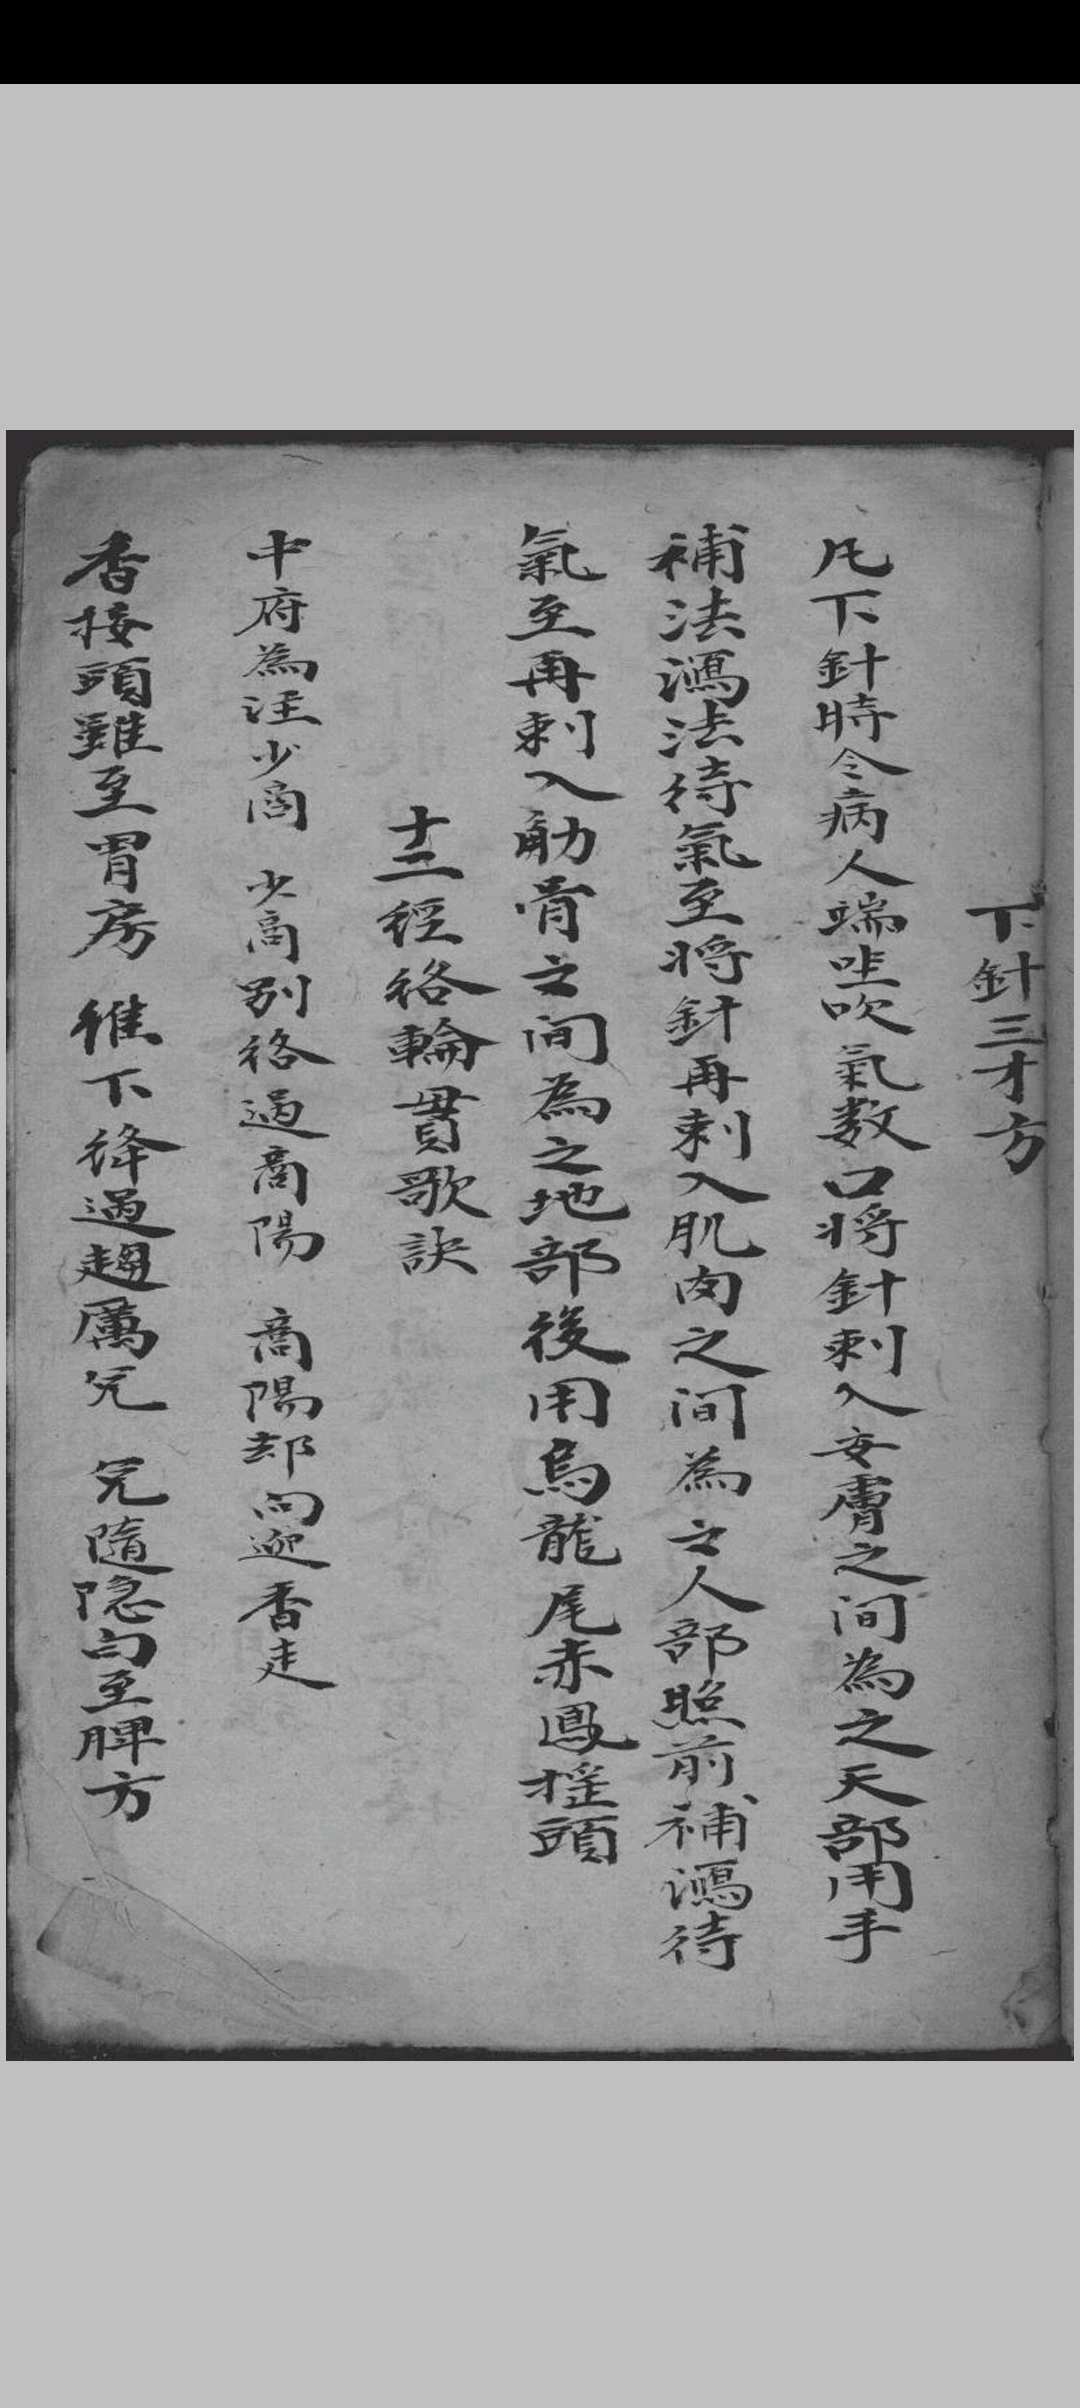 下針三才方
凡下針時令病人端坐吹氣数口将針刺入皮膚之间為之天部用手
補法瀉法待氣至将針再刺入肌肉之间為之人部照前補瀉待
氣至再刺入觔骨之间為之地部後用烏龍尾赤鳳摇頭
十二經络輪貫歌訣
中府為注少商 少商别络過商陽 商陽却向迎香走
香接頭難至胃房 維下絳過趨厲兊 兊随隐白至脾方